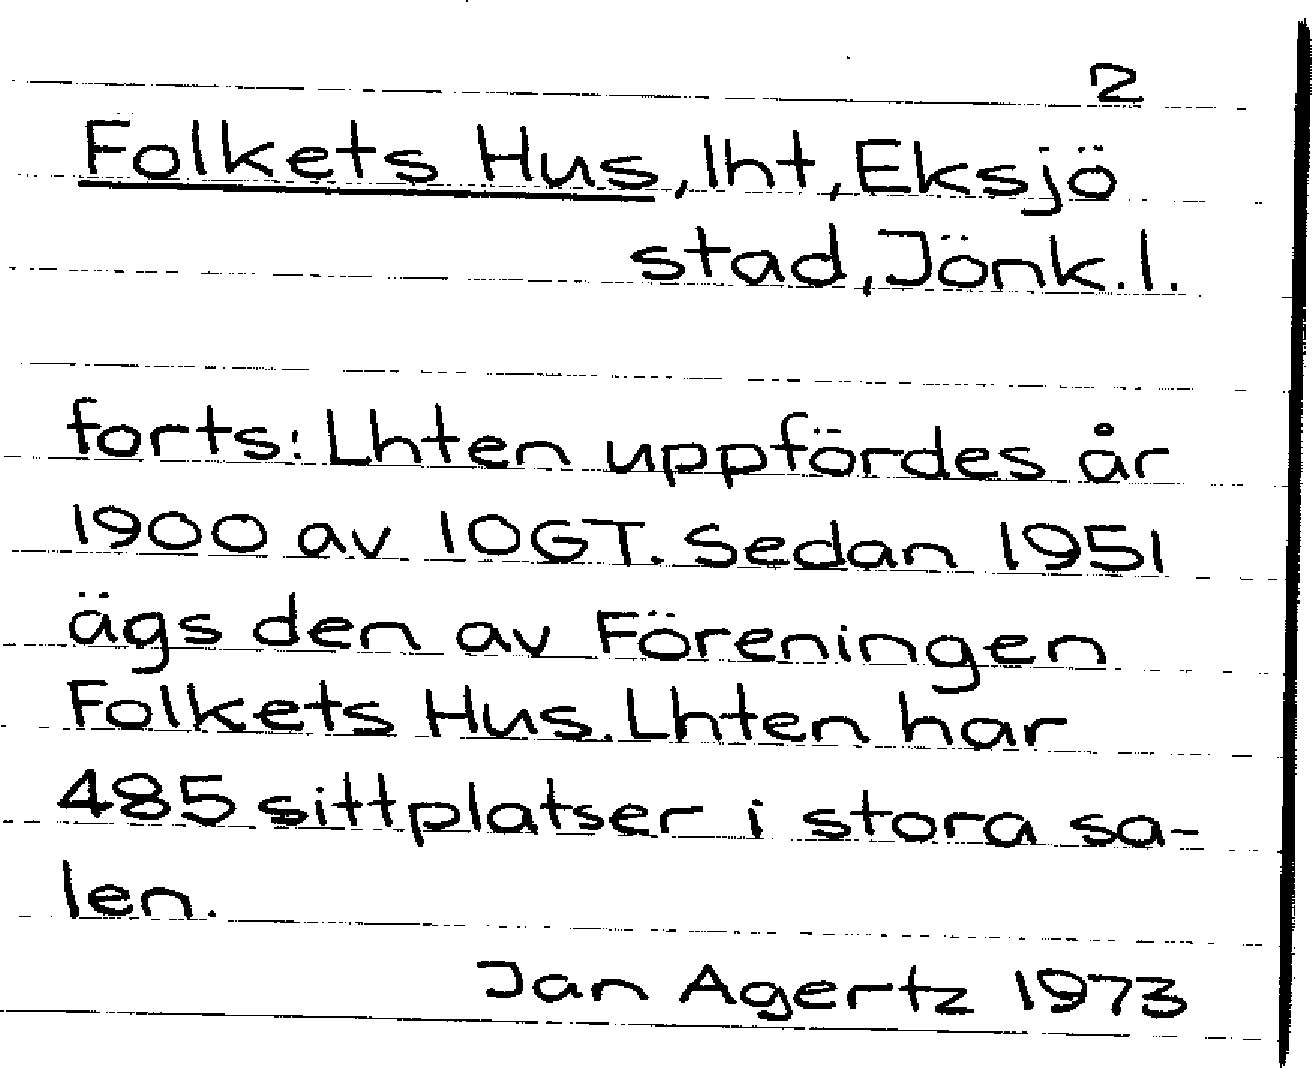 2
Folkets Hus, lht, Eksjö
stad, Jönk.l.
forts: Lhten uppfördes år
1900 av IOGT. Sedan 1951
ägs den av Föreningen
Folkets Hus. Lhten har
485 sittplatser i stora sa-
len.
Jan Agertz 1973